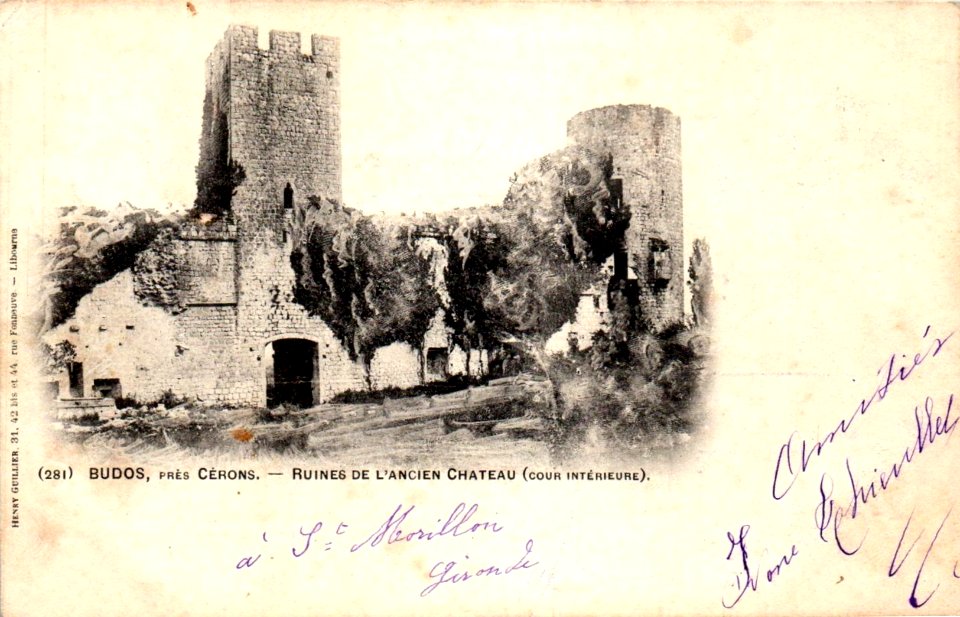 HENRY GUILLIER. 31, 42 bis et 44, rue Fonneuve. — Libourne
(281) BUDOS, PRÈS CÉRONS. — RUINES DE L'ANCIEN CHATEAU (COUR INTÉRIEURE).
à St Morillon
Gironde
Amitiés